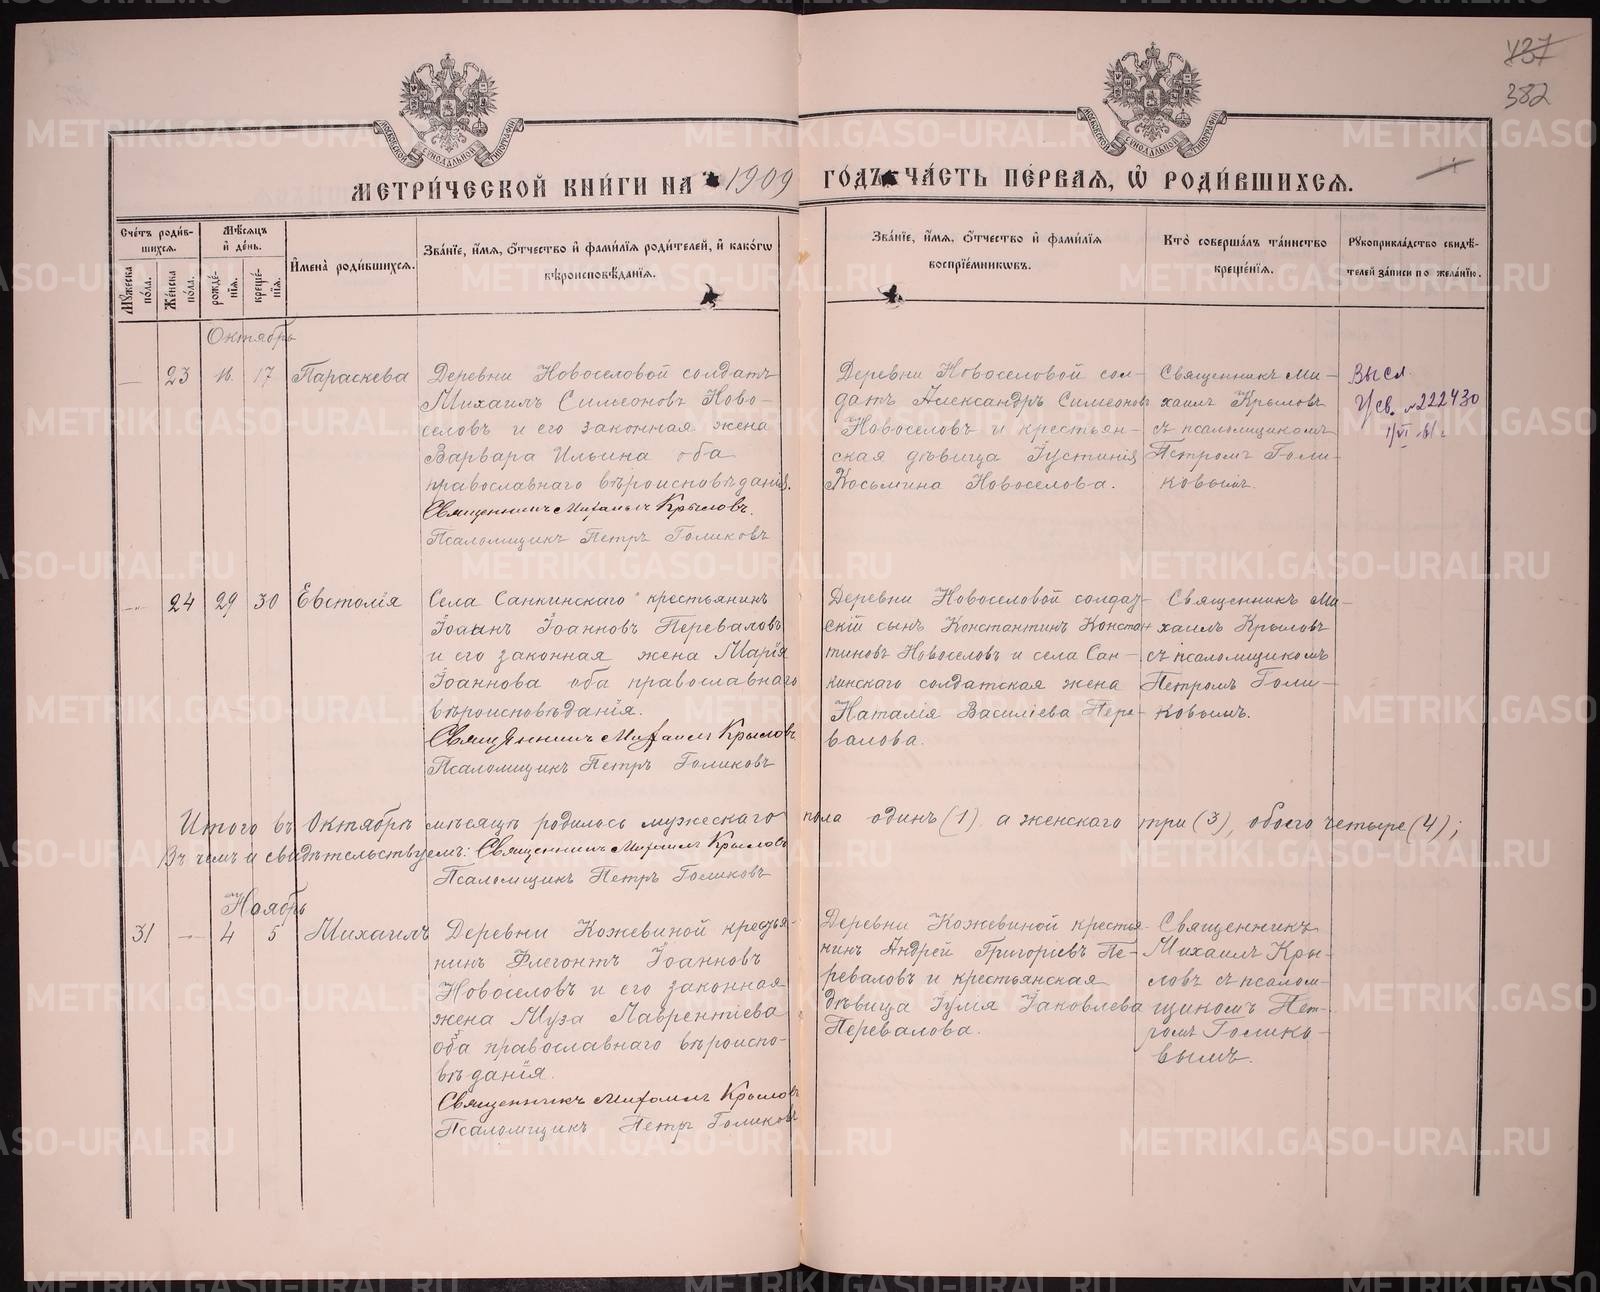 437
382
МОСКОВСКОЙ СѴНОДАЛЬНОЙ ТИПОГРАФІИ
МОСКОВСКОЙ СѴНОДАЛЬНОЙ ТИПОГРАФІИ
МЕТРИ́ЧЕСКОЙ КНИ́ГИ НА 1909 ГО́ДЪ ЧА́СТЬ ПЕ́РВАѦ, Ѡ҆ РОДИ́ВШИХСѦ.
Сче́тъ роди́в-
шихсѧ.
Мѣ́сѧцъ
и҆ де́нь.
Мꙋ́жеска
по́ла.
Же́нска
по́ла.
рожде́-
нїѧ.
креще́-
нїѧ.
И҆мена̀ роди́вшихсѧ.
Зва́нїе, и҆́мѧ, ѻ҆́тчество и҆ фами́лїѧ роди́телей, и҆ како́гѡ
вѣроисповѣ́данїѧ.
Зва́нїе, и҆́мѧ, ѻ҆́тчество и҆ фами́лїѧ
воспрїе́мникѡвъ.
Кто̀ соверша́лъ та́инство
креще́нїѧ.
Рꙋкоприкла́дство свидѣ́-
телей за́писи по жела́нїю.
Октябрь
— 23 16 17 Параскева
Деревни Новоселовой солдатъ
Михаилъ Симеоновъ Ново-
селовъ и его законная жена
Варвара Ильина оба
православнаго вѣроисповѣданія.
Священникъ Михаилъ Крыловъ.
Псаломщикъ Петръ Голиковъ
Деревни Новоселовой сол-
датъ Александръ Симеоновъ
Новоселовъ и крестьян-
ская дѣвица Іустинія
Косьмина Новоселова.
Священникъ Ми-
хаилъ Крыловъ
съ псаломщикомъ
Петромъ Голи-
ковымъ.
Высл.
св. №222430
— 24 29 30 Евстолія
Села Санкинскаго крестьянинъ
Іоаннъ Іоанновъ Переваловъ
и его законная жена Марія
Іоаннова оба православнаго
вѣроисповѣданія.
Священникъ Михаилъ Крыловъ
Псаломщикъ Петръ Голиковъ
Деревни Новоселовой солдат-
скій сынъ Константинъ Констан-
тиновъ Новоселовъ и села Сан-
кинскаго солдатская жена
Наталія Василіева Пере-
валова.
Священникъ Ми-
хаилъ Крыловъ
съ псаломщикомъ
Петромъ Голи-
ковымъ.
Итого въ Октябрѣ мѣсяцѣ родилось мужескаго пола одинъ (1) а женскаго три (3), обоего четыре (4);
Въ чемъ и свидѣтельствуемъ: Священникъ Михаилъ Крыловъ
Псаломщикъ Петръ Голиковъ
Ноябрь
31 — 4 5 Михаилъ
Деревни Кожевиной крестья-
нинъ Флегонтъ Іоанновъ
Новоселовъ и его законная
жена Муза Лаврентіева
оба православнаго вѣроиспо-
вѣданія.
Священникъ Михаилъ Крыловъ
Псаломщикъ Петръ Голиковъ
Деревни Кожевиной крестья-
нинъ Андрей Григоріевъ Пе-
реваловъ и крестьянская
дѣвица Іулія Іаковлева
Перевалова.
Священникъ
Михаилъ Кры-
ловъ съ псалом-
щикомъ Пет-
ромъ Голико-
вымъ.
METRIKI.GASO-URAL.RU